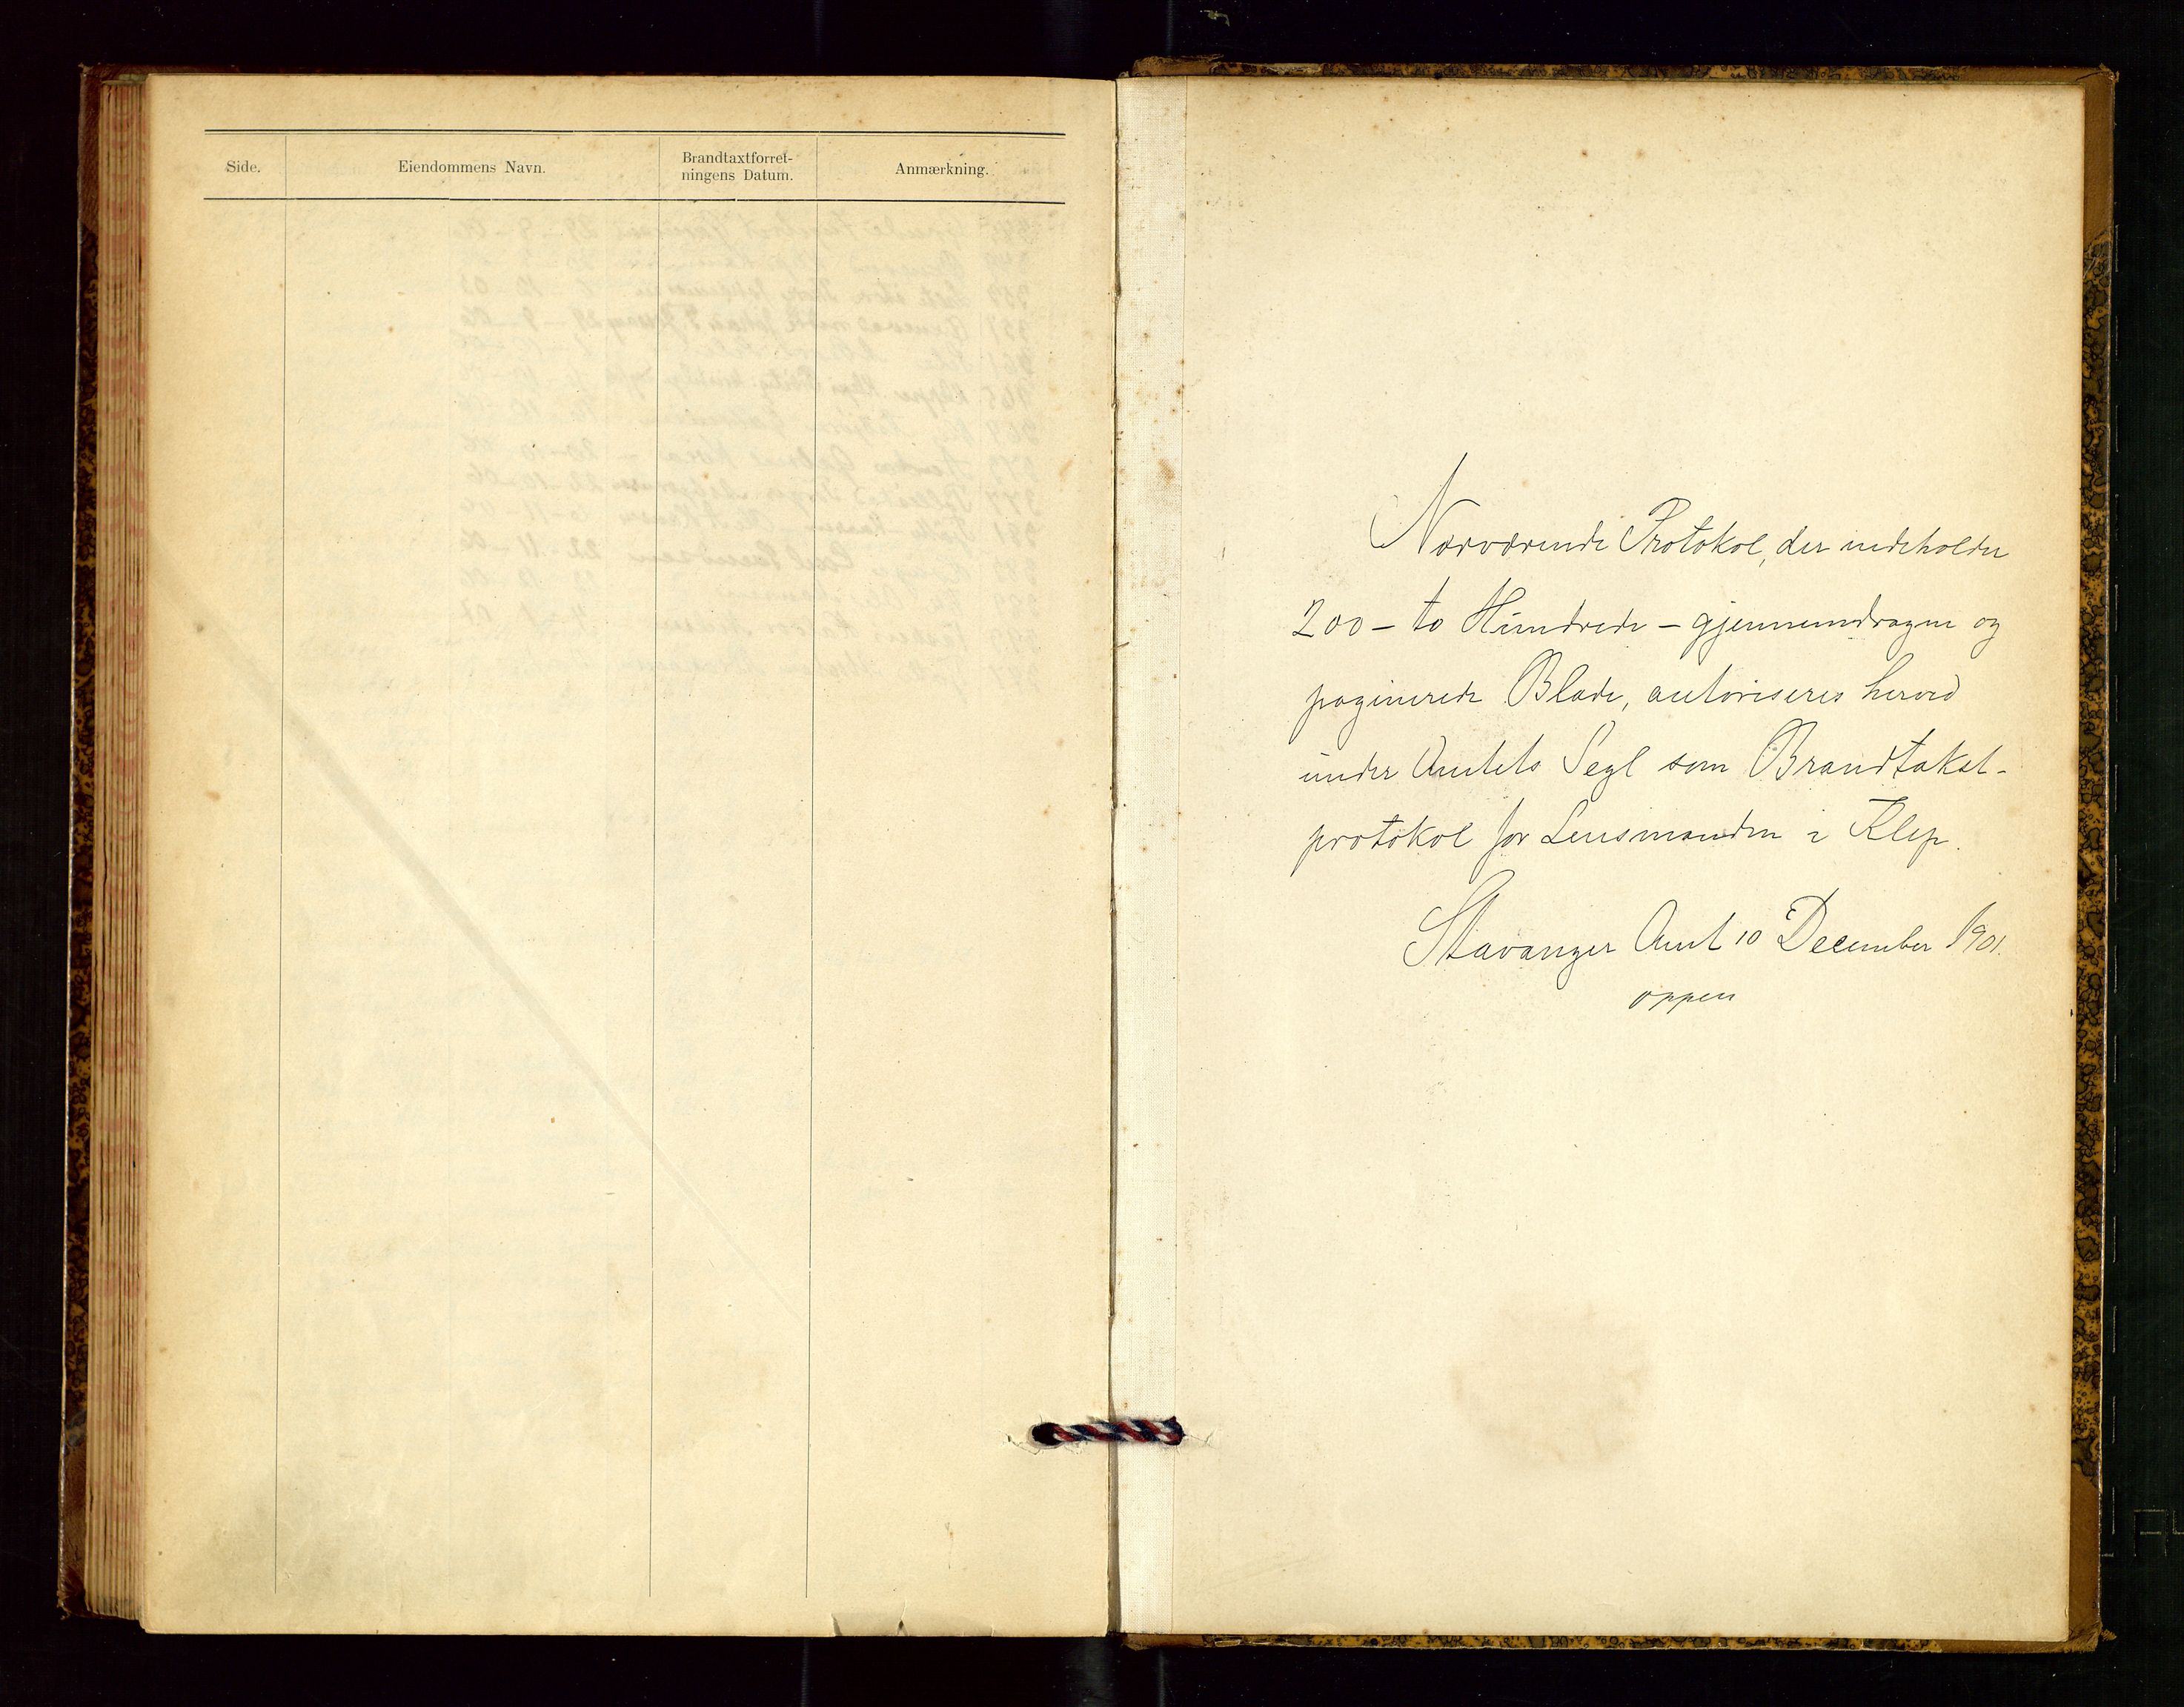 Side.
Eiendommens Navn.
Brandtaxtforret-
ningens Datum.
Anmærkning.
Nærværende Protokol, der indeholder
200 - to Hundrede - gjennemdragne og
paginerede Blade, autoriseres herved
under Amtets Segl som Brandtakst-
protokol for Lensmanden i Klep.
Stavanger Amt 10 December 1901.
oppen